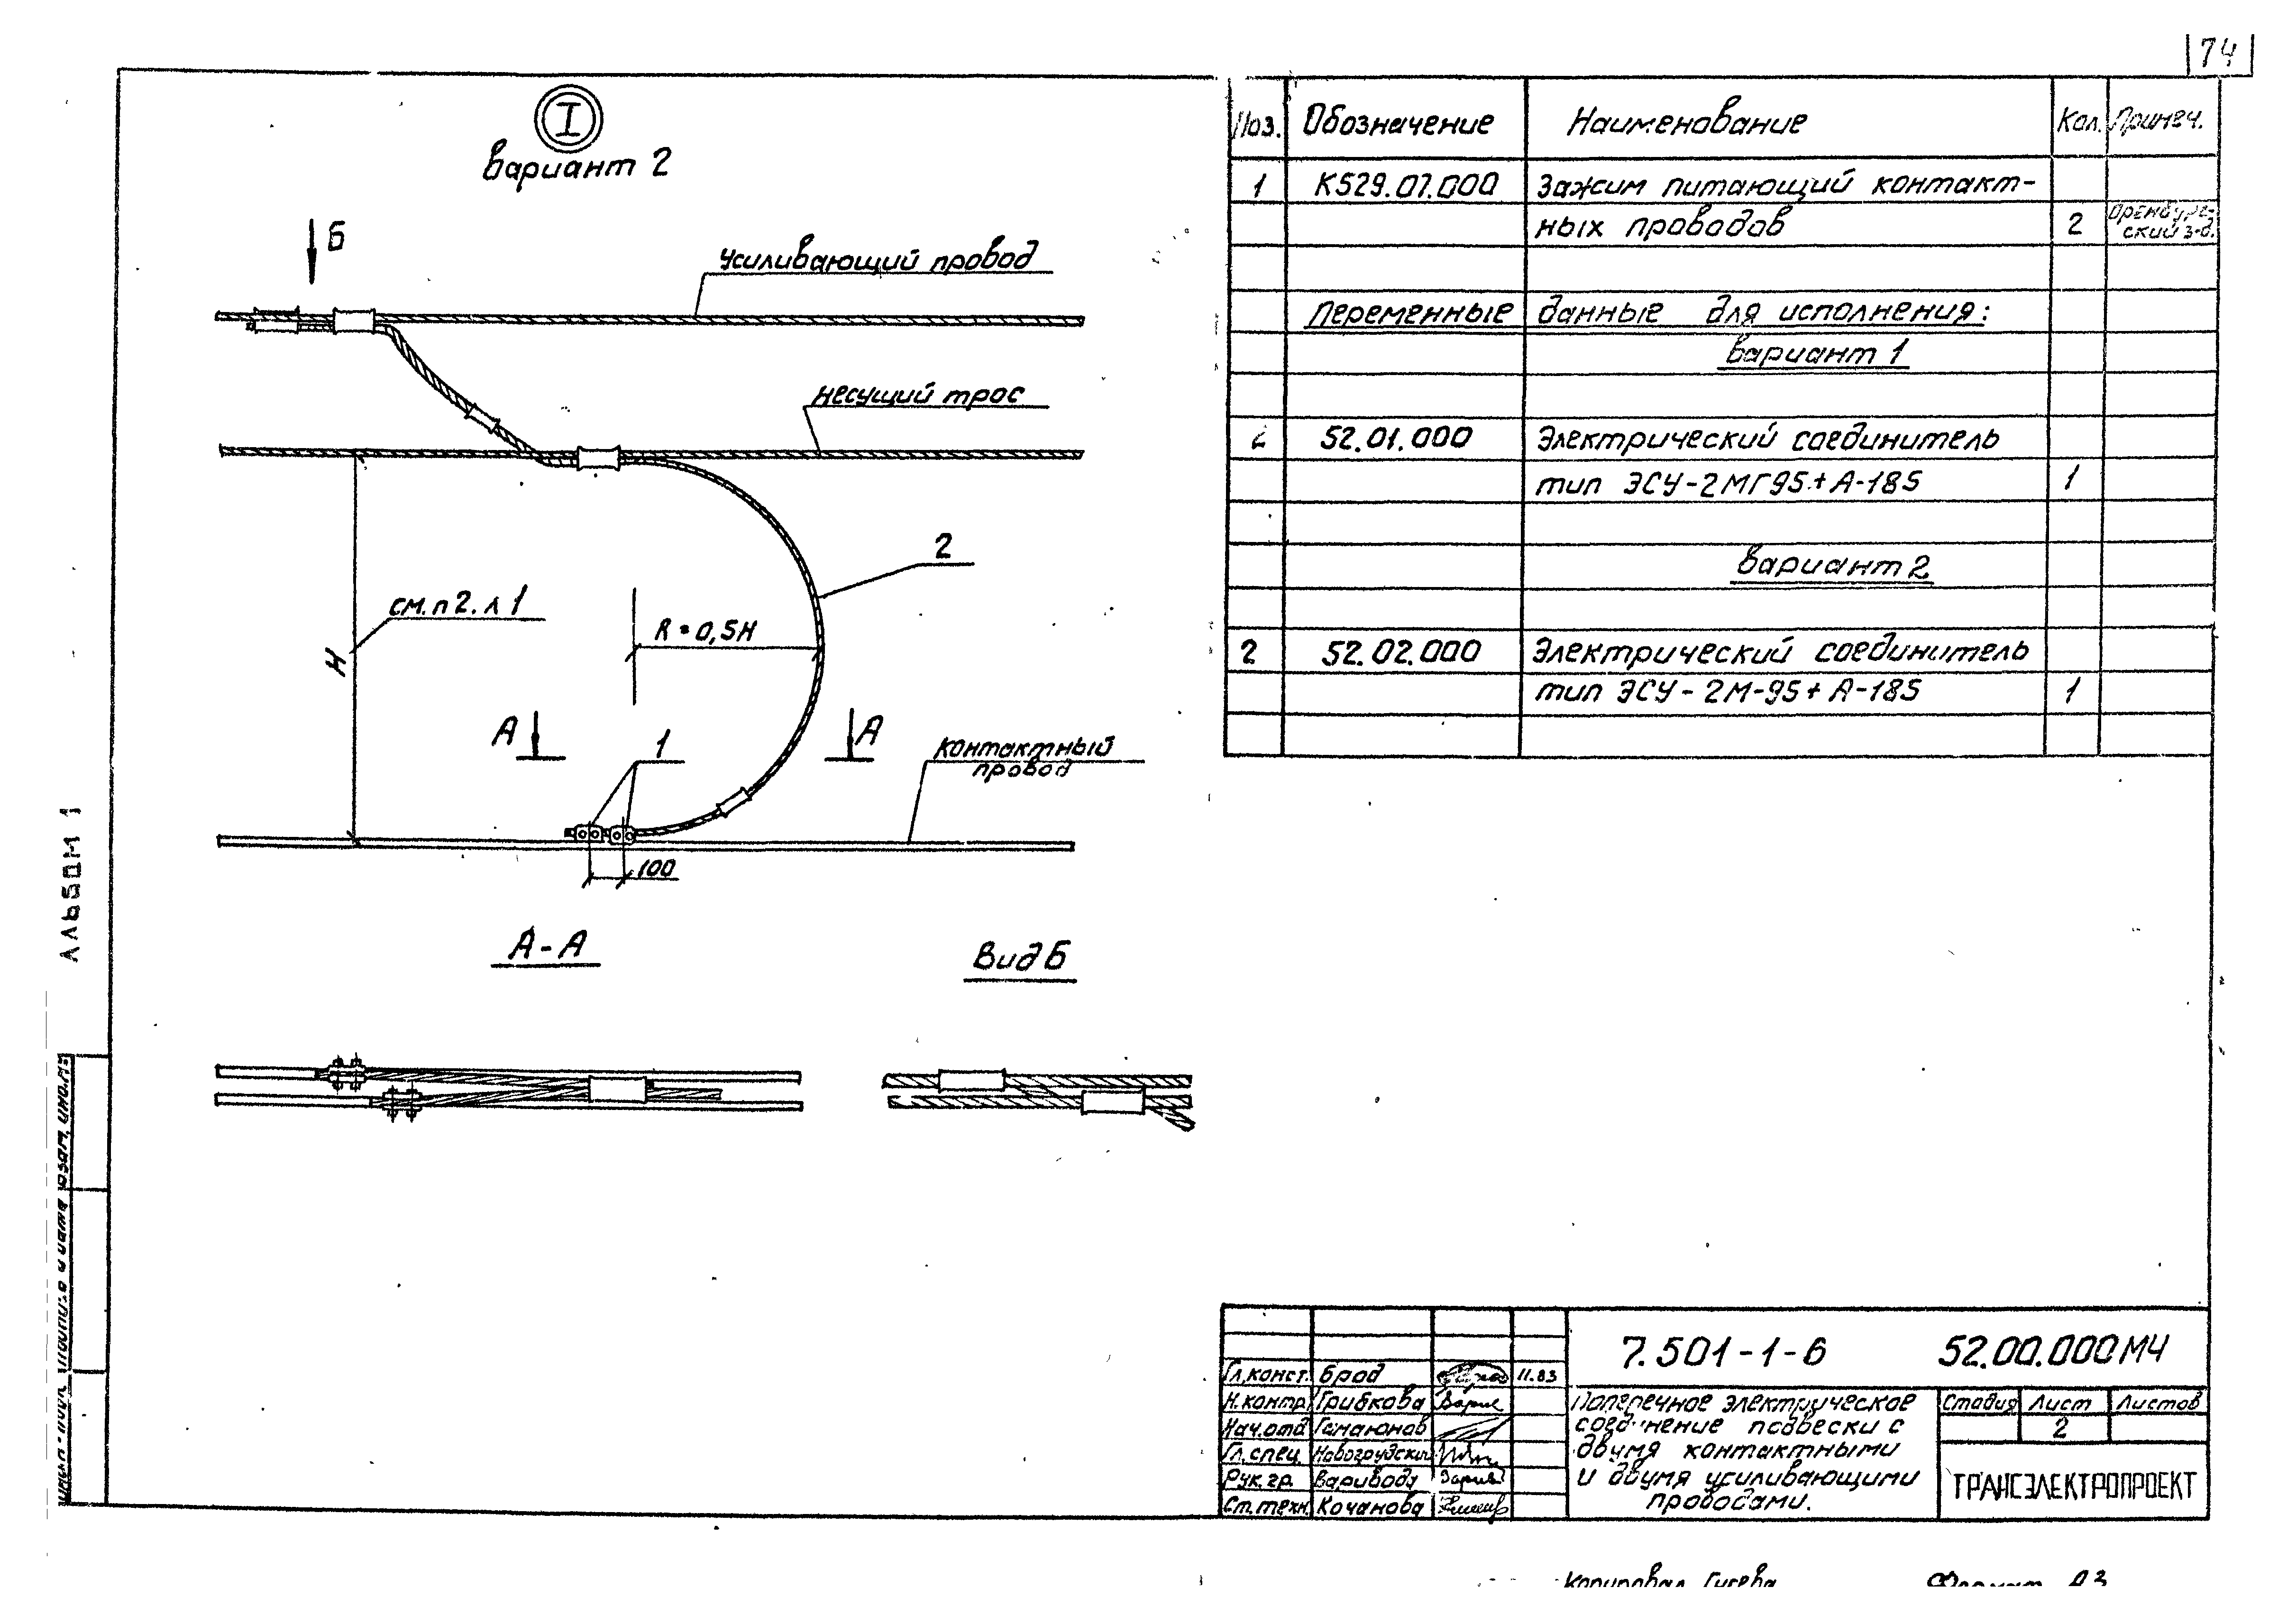 74
I
вариант 2
Б
Усиливающий провод
несущий трос
2
см. п 2. л 1
R = 0,5H
H
А А
1
контактный
провод
100
А-А
Вид Б
АЛЬБОМ 1
Поз. Обозначение Наименование Кол. Примеч.
1 К529.07.000 Зажим питающий контакт-
ных проводов 2 Оренбург-
ский з-д.
Переменные данные для исполнения:
вариант 1
2 52.01.000 Электрический соединитель
тип ЭСУ-2МГ95+А-185 1
вариант 2
2 52.02.000 Электрический соединитель
тип ЭСУ-2М-95+А-185 1
7.501-1-6 52.00.000МЧ
Гл.конст. Брод 11.83
Н.контр. Грибкова
Нач.отд Гамаюнов
Гл.спец. Новогрудский
Рук.гр. Варивода
Ст.техн. Кочанова
Поперечное электрическое
соединение подвески с
двумя контактными
и двумя усиливающими
проводами.
Стадия Лист Листов
2
ТРАНСЭЛЕКТРОПРОЕКТ
Копировал Гусева Формат А3